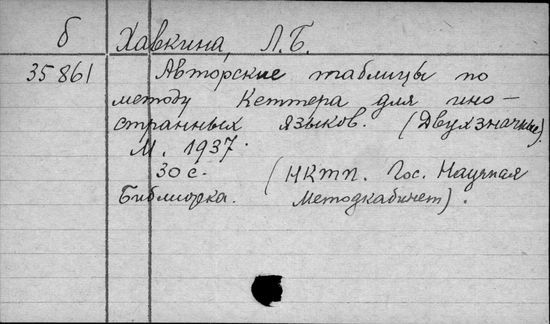 б Хавкина, Л.Б.
35861 Авторские таблицы по
методу Кеттера для ино-
странных языков. (Двухзначные).
М. 1937.
30 с. (НКТП. Гос. Научная
Библиорка. Методкабинет).